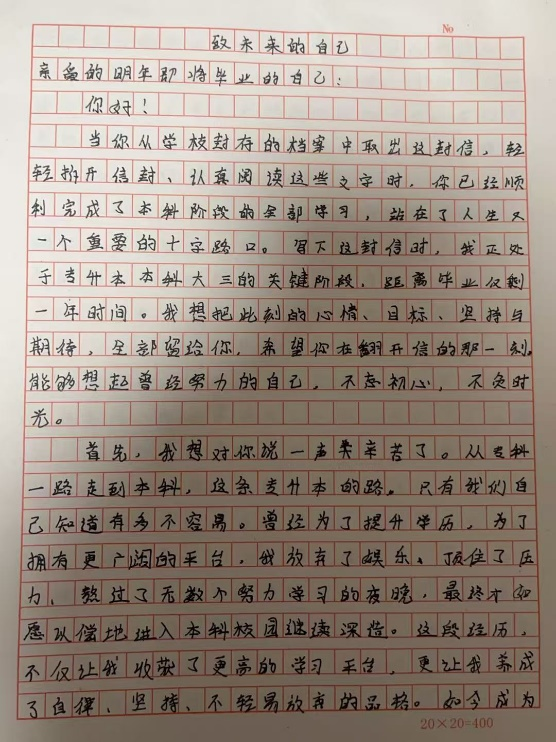 No
致未来的自己
亲爱的明年即将毕业的自己：
你好！
当你从学校封存的档案中取出这封信，轻
轻拆开信封、认真阅读这些文字时，你已经顺
利完成了本科阶段的全部学习，站在了人生又
一个重要的十字路口。写下这封信时，我正处
于专升本本科大三的关键阶段，距离毕业仅剩
一年时间。我想把此刻的心情、目标、坚持与
期待，全部留给你，希望你在翻开信的那一刻，
能够想起曾经努力的自己，不忘初心，不负时
光。
首先，我想对你说一声辛苦了。从专科
一路走到本科，这条专升本的路。只有我们自
己知道有多不容易。曾经为了提升学历，为了
拥有更广阔的平台，我放弃了娱乐、顶住了压
力、熬过了无数个努力学习的夜晚，最终才如
愿以偿地进入本科校园继续深造。这段经历，
不仅让我收获了更高的学习平台，更让我养成
了自律、坚持、不轻易放弃的品格。如今成为
20×20=400